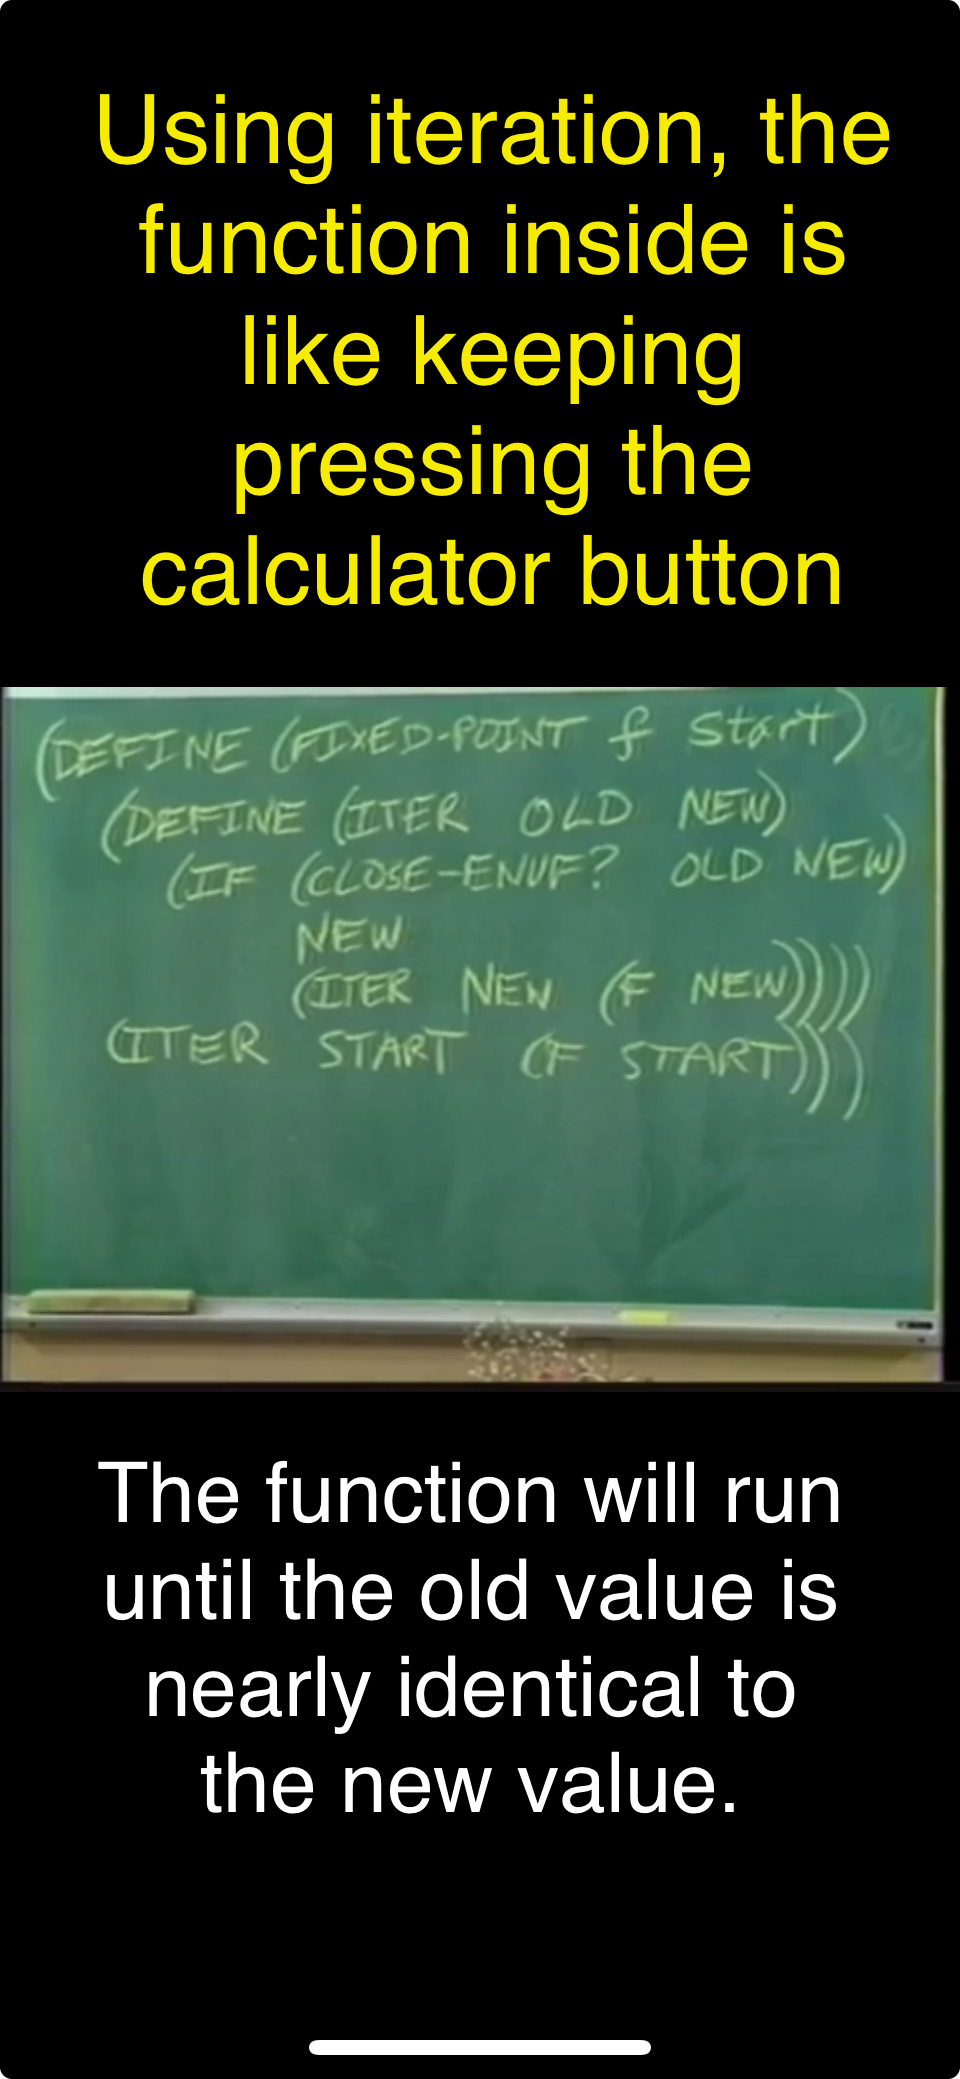 Using iteration, the
function inside is
like keeping
pressing the
calculator button
(DEFINE (FIXED-POINT f Start)
(DEFINE (ITER OLD NEW)
(IF (CLOSE-ENUF? OLD NEW)
NEW
(ITER NEW (F NEW))))
(ITER START (F START)))
The function will run
until the old value is
nearly identical to
the new value.